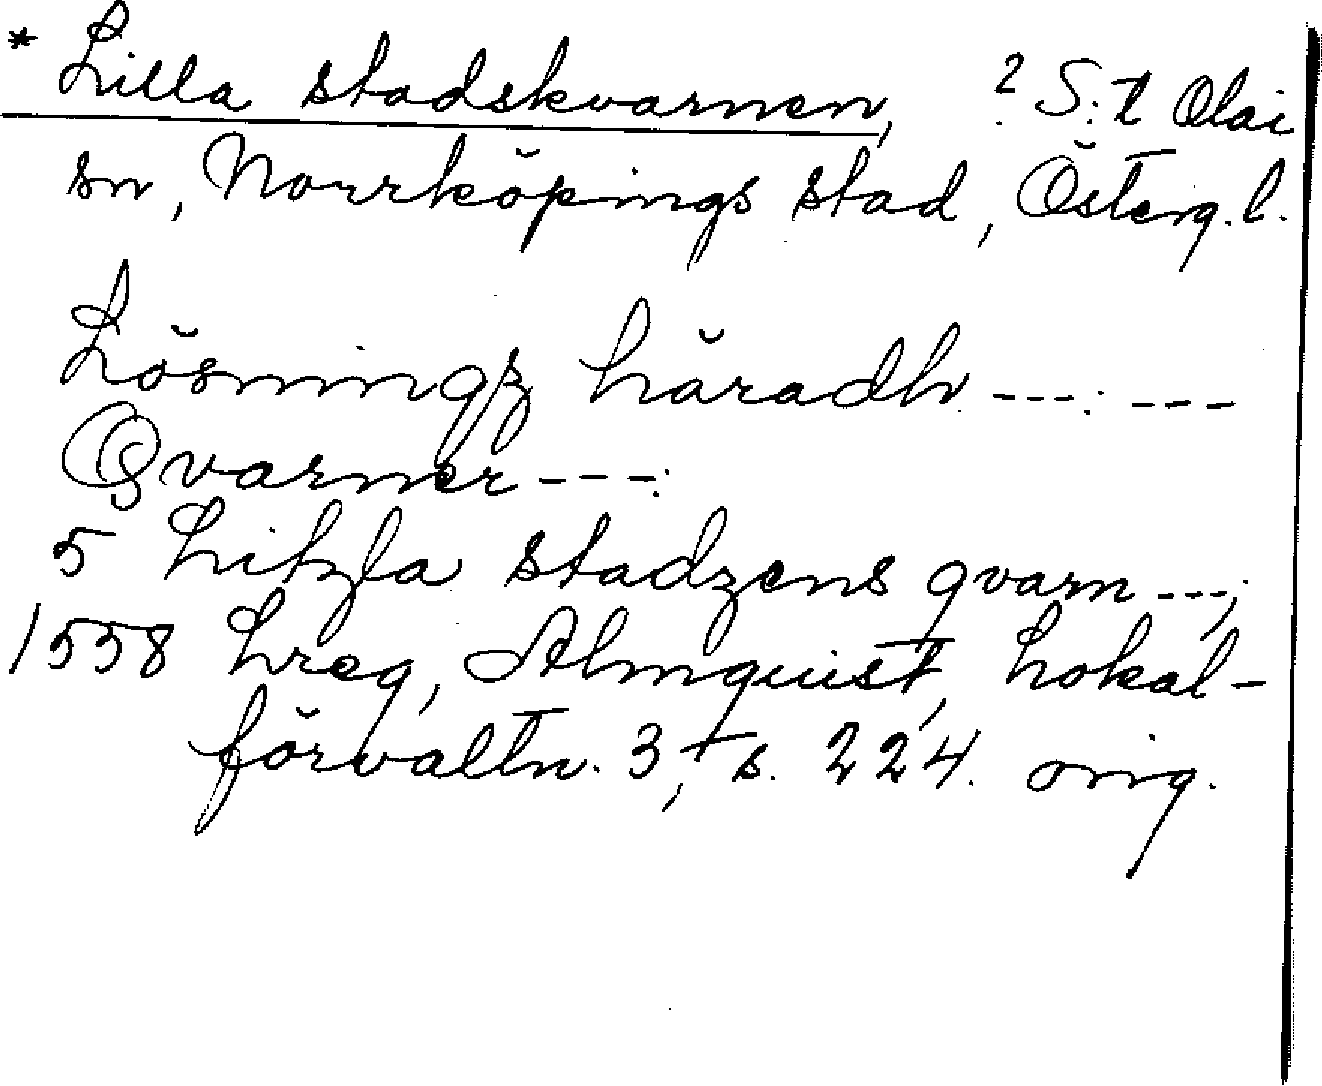 * Lilla stadskvarnen, ? S:t Olai
sn, Norrköpings stad, Österg.l.
Lösningz häradh ---: ---
Qvarner ---:
5 Litzla stadzens qvarn ---;
1558 Lreg, Almquist, Lokal-
förvaltn. 3, s. 224. orig.